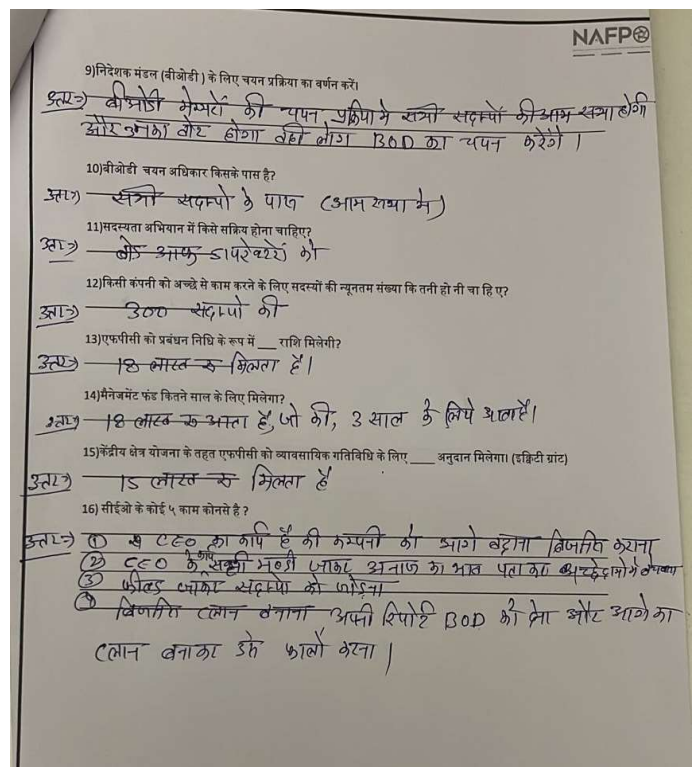 NAFPO
9)निदेशक मंडल (बीओडी ) के लिए चयन प्रक्रिया का वर्णन करें।
उत्तर→) बीओडी मेम्बरों की चयन प्रक्रिया मे सभी सदस्यों की आम सभा होगी
और उनका वोट होगा वही लोग BOD का चयन करेंगे ।
10)बीओडी चयन अधिकार किसके पास है?
उत्तर→) सभी सदस्यो के पास (आम सभा मे)
11)सदस्यता अभियान में किसे सक्रिय होना चाहिए?
उत्तर→) बोर्ड आफ डायरेक्टरों को
12)किसी कंपनी को अच्छे से काम करने के लिए सदस्यों की न्यूनतम संख्या कि तनी हो नी चा हि ए?
उत्तर→) 300 सदस्यो की
13)एफपीसी को प्रबंधन निधि के रूप में ___ राशि मिलेगी?
उत्तर→) 18 लाख रु मिलता है।
14)मैनेजमेंट फंड कितने साल के लिए मिलेगा?
उत्तर→) 18 लाख रु आता है, जो की, 3 साल के लिये आता है।
15)केंद्रीय क्षेत्र योजना के तहत एफपीसी को व्यावसायिक गतिविधि के लिए ____ अनुदान मिलेगा। (इक्विटी ग्रांट)
उत्तर→) 15 लाख रु मिलता है
16) सीईओ के कोई ५ काम कोनसे है ?
उत्तर→) ① CEO का कार्य है की कम्पनी को आगे बढ़ाना बिजनिस कराना
② CEO के कार्य सब्जी मण्डी जाकर अनाज का भाव पता कर अच्छे दामो मे बेचना
③ फील्ड जाकर सदस्यो को जोड़ना
④ बिजनिस प्लान बनाना अपनी रिपोर्ट BOD को देना और आगे का
प्लान बनाकर उसे फालो करना |